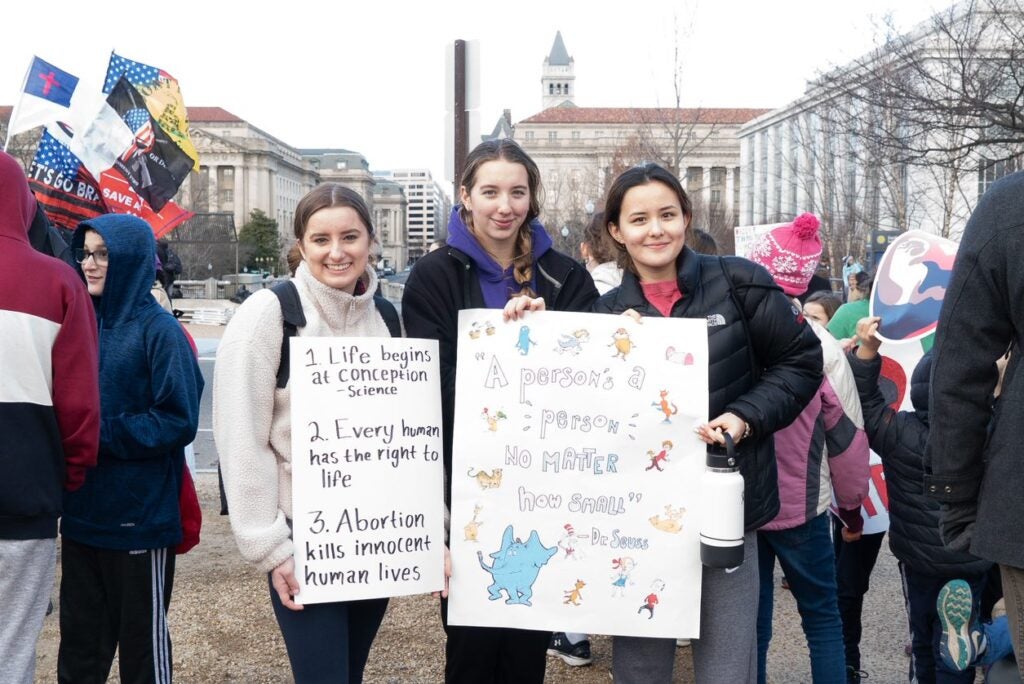 LET'S GO BRA
SAVE A
1. Life begins
at conception
-Science
2. Every human
has the right to
life
3. Abortion
kills innocent
human lives
"A person's a
person
NO MATTER
how small"
-Dr Seuss
THE
NORTH
FACE